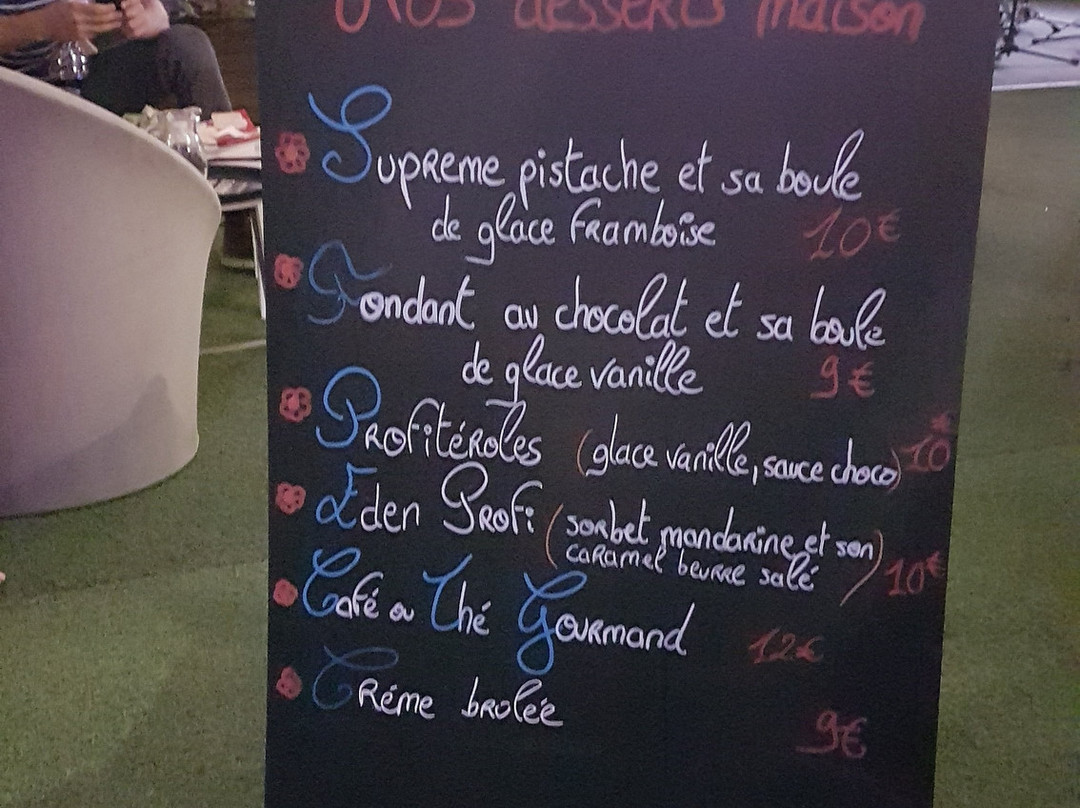 Nos desserts maison
Supreme pistache et sa boule
de glace framboise 10€
Fondant au chocolat et sa boule
de glace vanille 9€
Profitéroles (glace vanille, sauce choco) 10€
Eden Profi (sorbet mandarine et son
caramel beurre salé) 10€
Café ou Thé Gourmand 12€
Créme brolée
9€